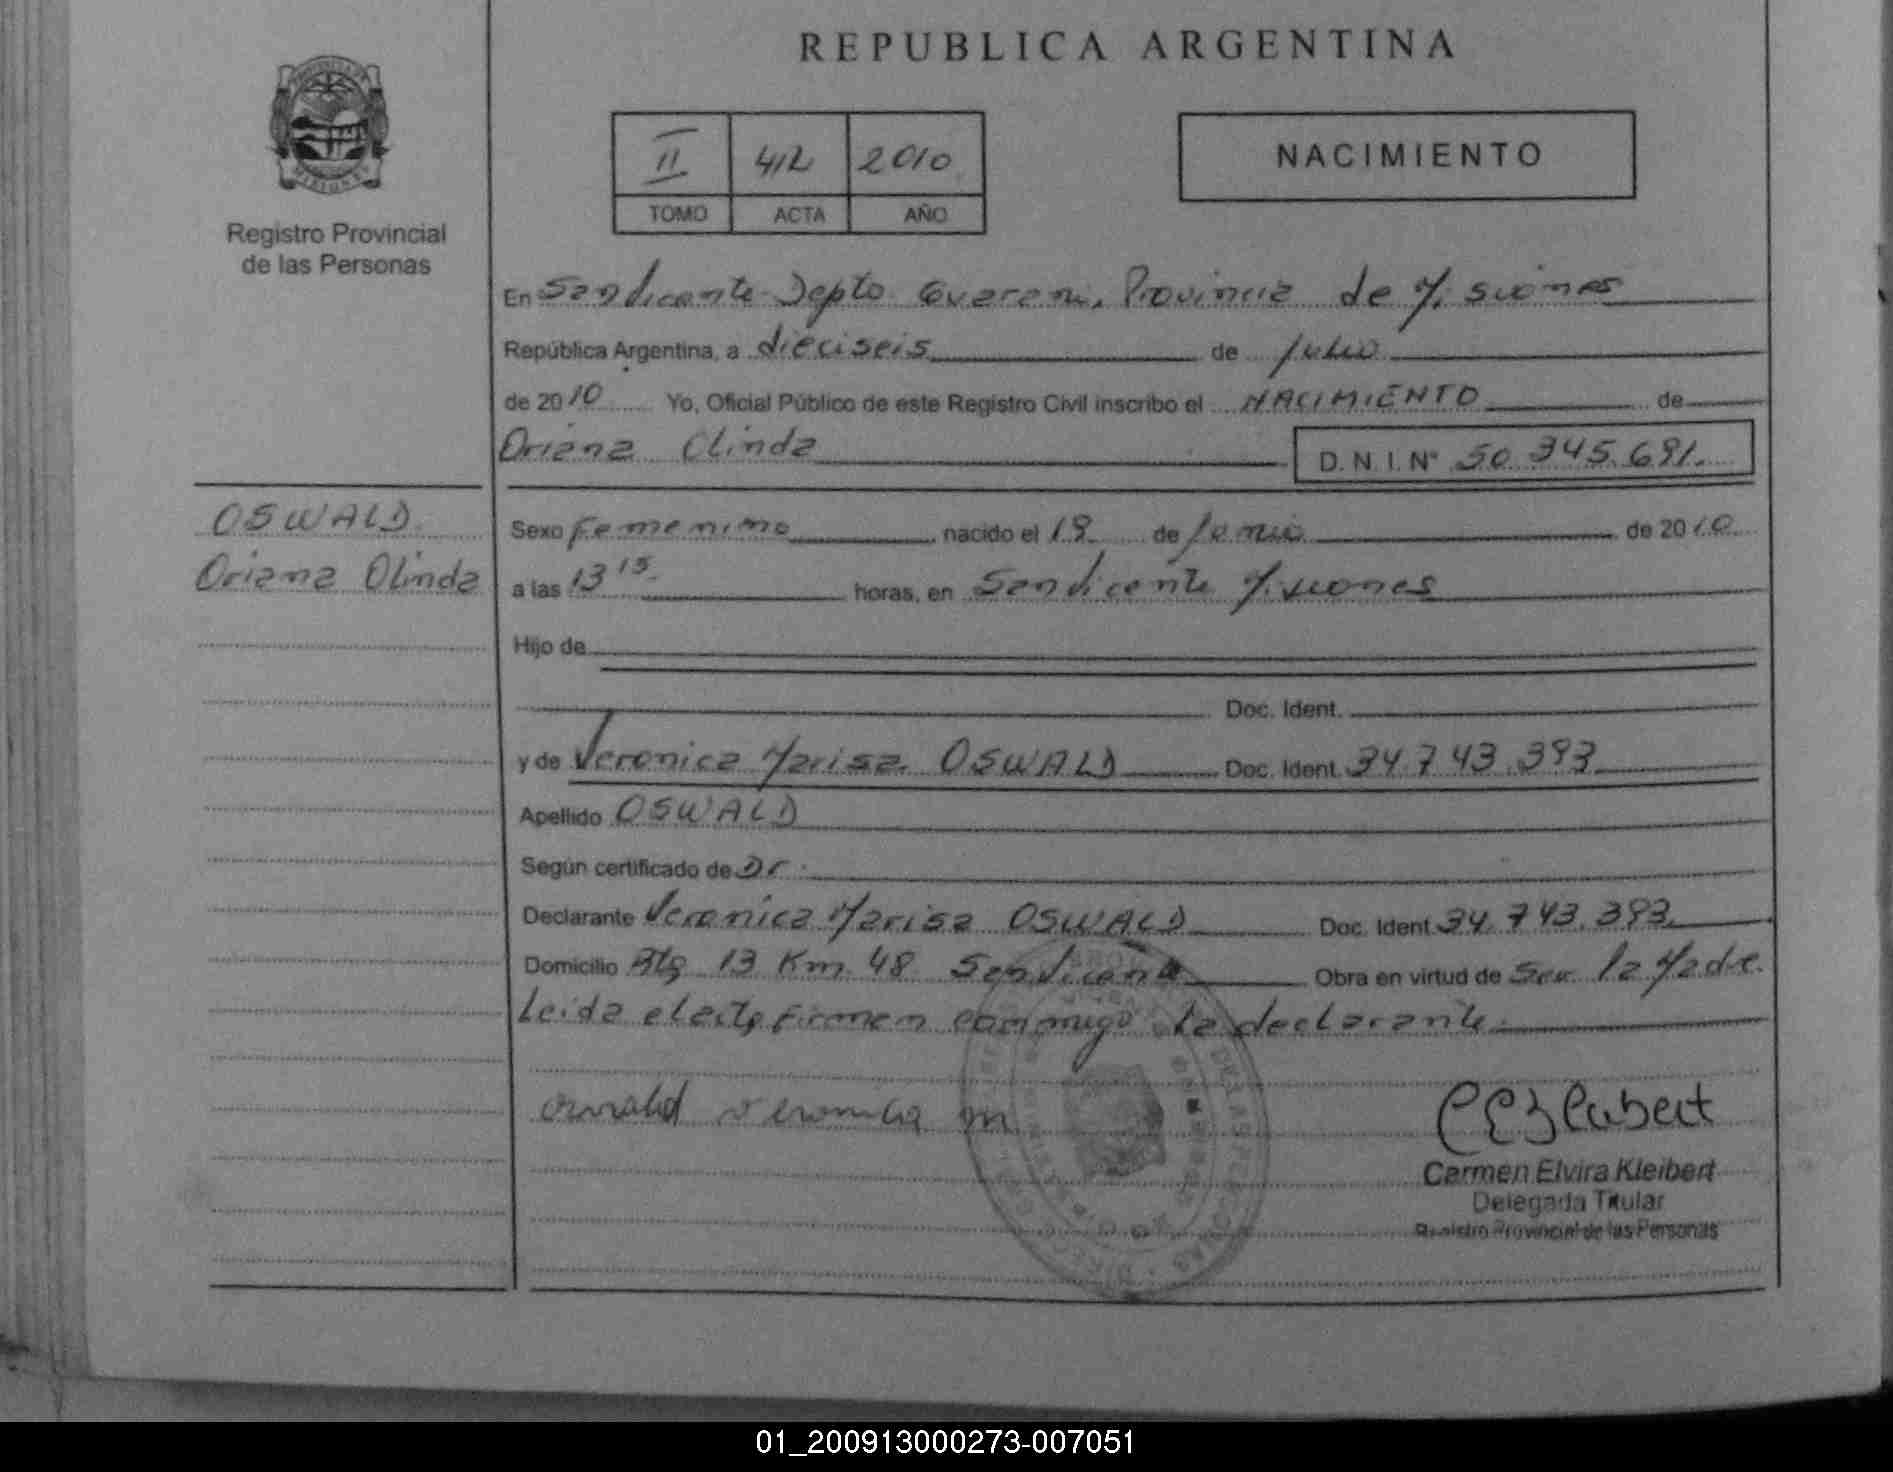 REPUBLICA ARGENTINA
PROVINCIA DE
MISIONES
Registro Provincial
de las Personas
II 412 2010
TOMO ACTA AÑO
NACIMIENTO
En San Vicente Depto Guarani, Provincia de Misiones
República Argentina, a dieciseis de Julio
de 2010 Yo, Oficial Público de este Registro Civil inscribo el NACIMIENTO de
Oriana Olinda D.N.I. Nº 50.345.691.
OSWALD
Oriana Olinda
Sexo Femenino nacido el 19 de Junio de 2010
a las 13 15 horas, en San Vicente Misiones
Hijo de
Doc. Ident.
y de Veronica Marisa OSWALD Doc. Ident. 34.743.393
Apellido OSWALD
Según certificado de Dr.
Declarante Veronica Marisa OSWALD Doc. Ident. 34.743.393
Domicilio Rta 13 Km 48 San Vicente Obra en virtud de Ser la Madre
Leida el acta, firman conmigo la declarante
oswald veronica m
Carmen Elvira Kleibert
Delegada Titular
Registro Provincial de las Personas
01_200913000273-007051